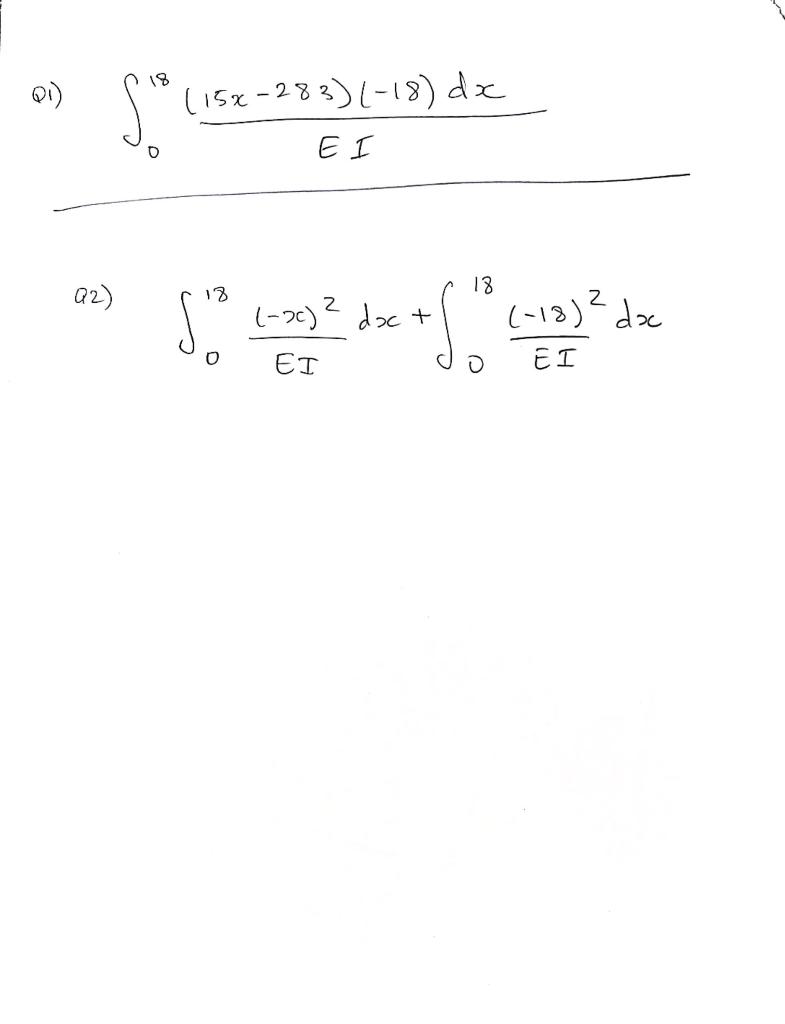 Q1) ∫₀¹⁸ (15x-283)(-18) dx
EI
Q2) ∫₀¹⁸ (-x)² dx + ∫₀¹⁸ (-18)² dx
EI EI